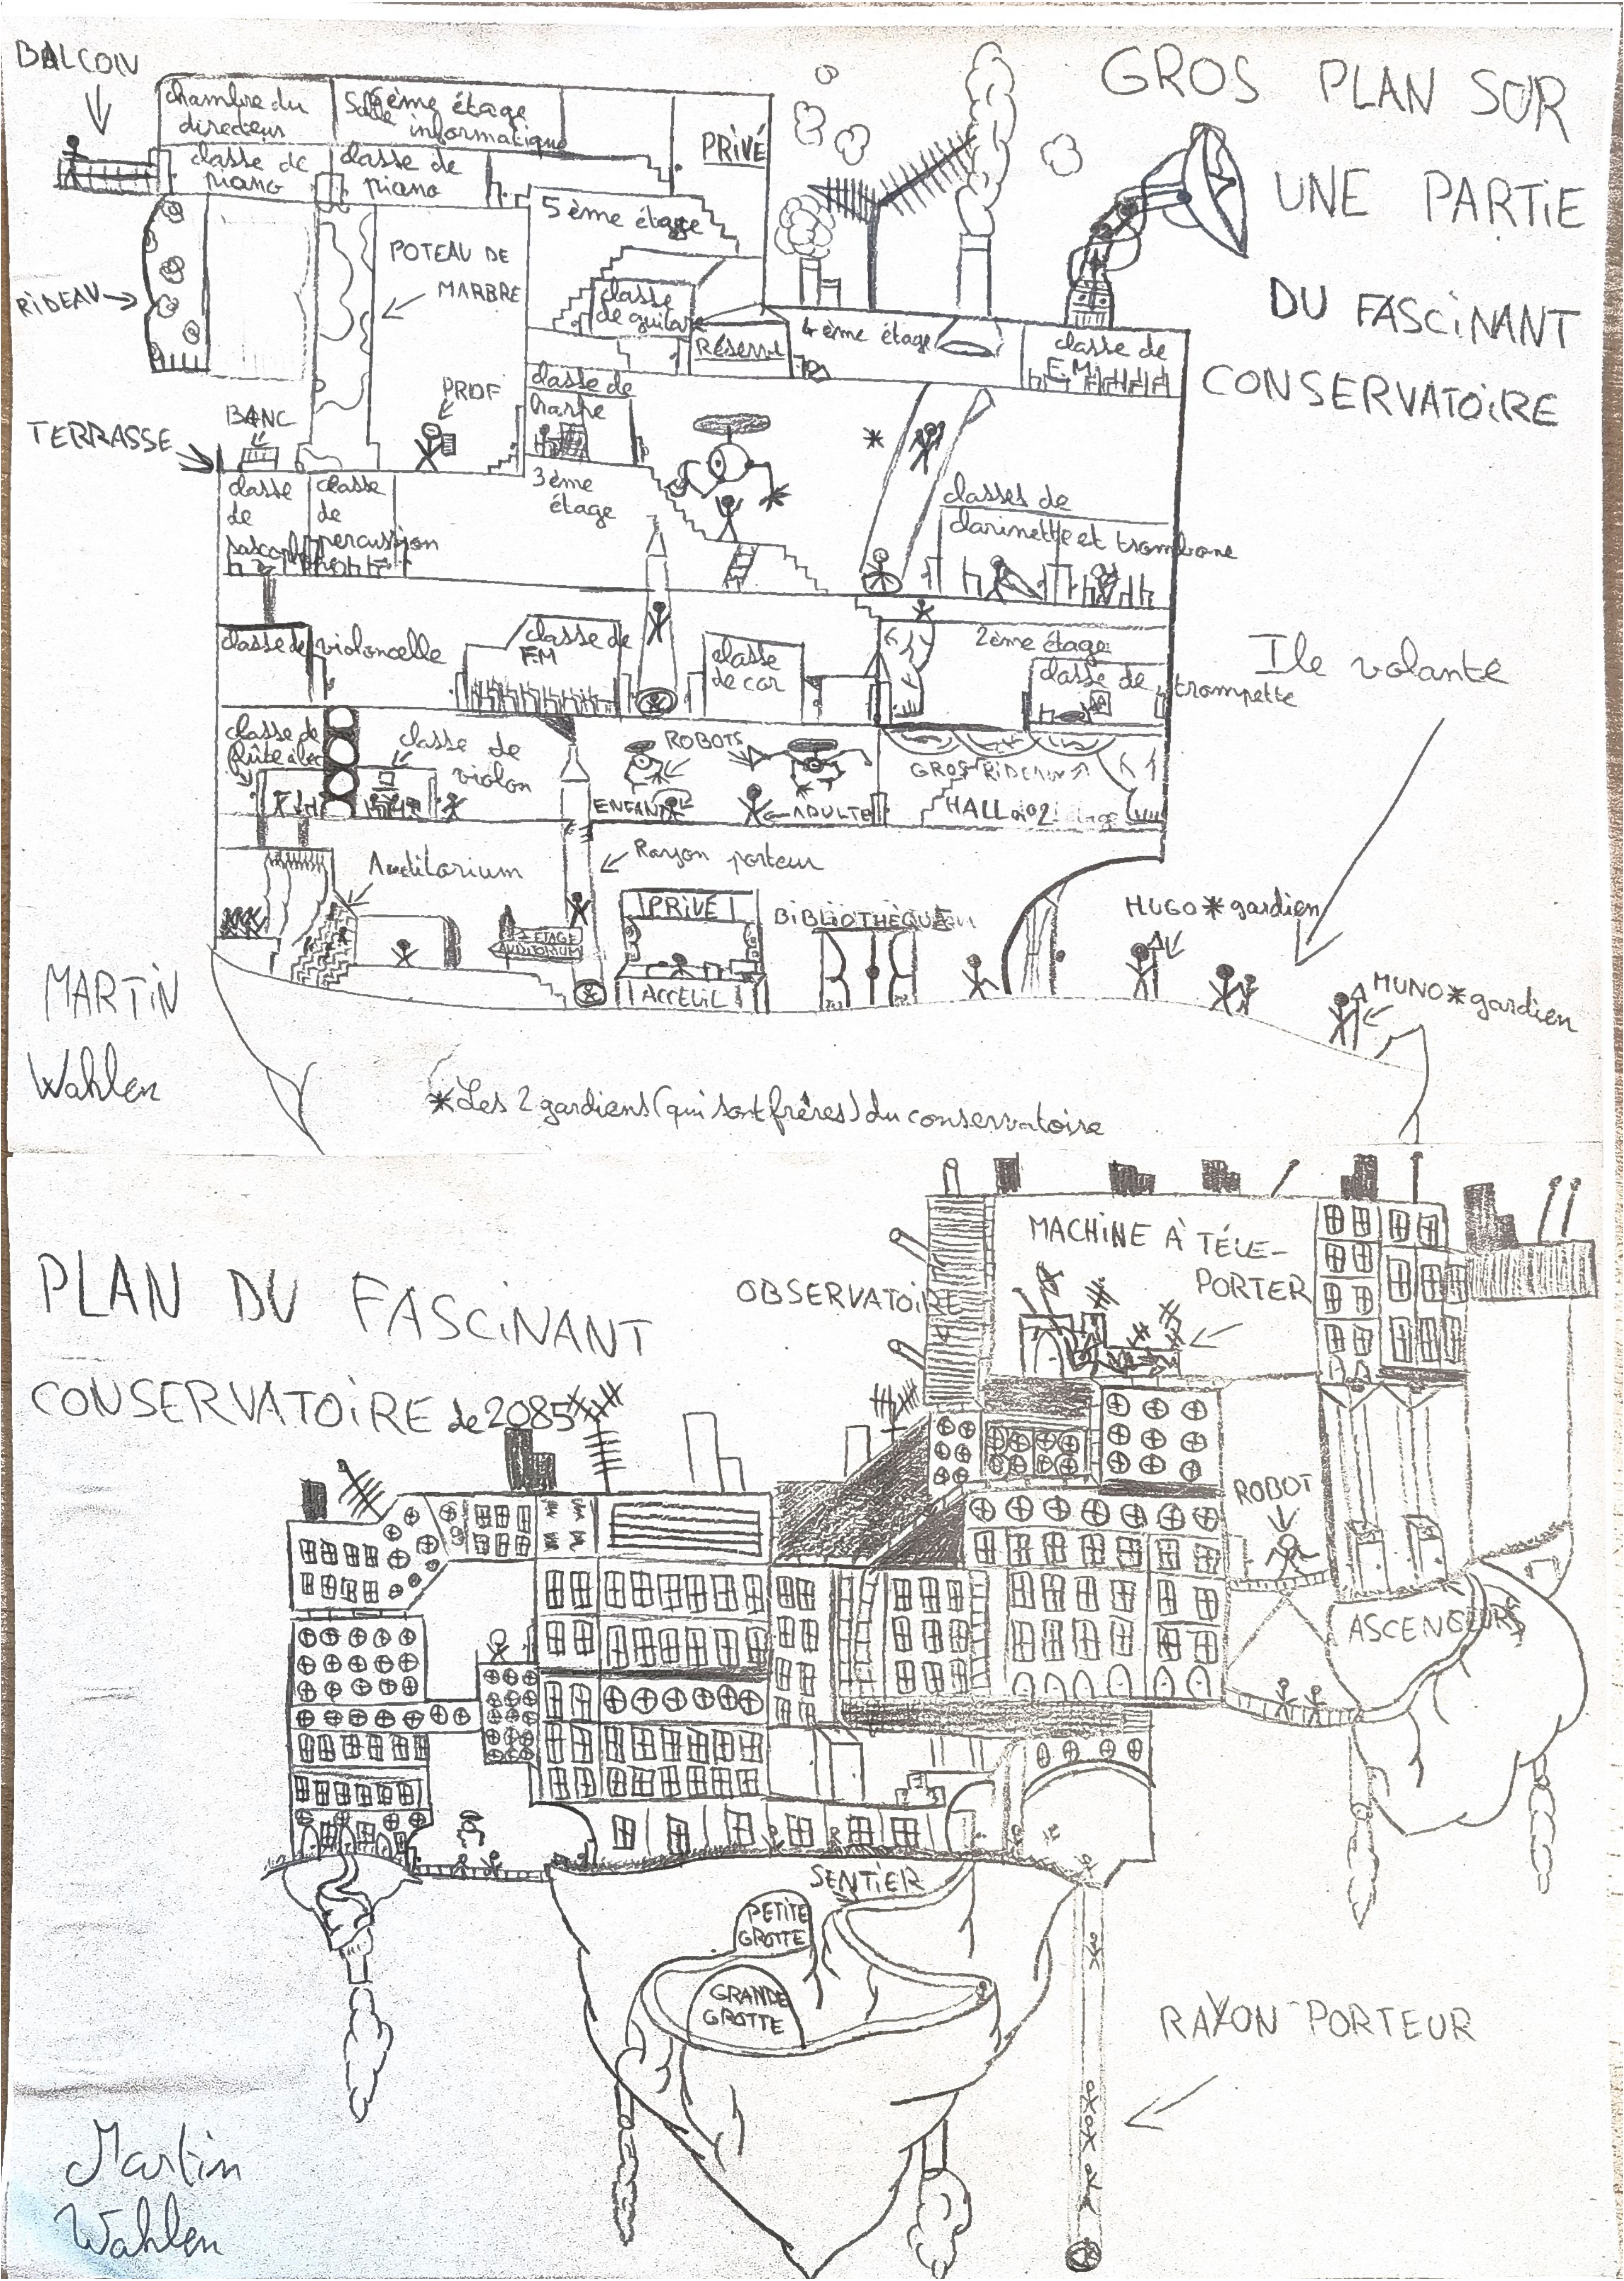 BALCON
chambre du
directeur
Salle 6ème étage
informatique
PRIVÉ
GROS PLAN SUR
UNE PARTIE
DU FASCINANT
CONSERVATOIRE
classe de
piano
classe de
piano
5ème étage
POTEAU DE
MARBRE
RIDEAU
classe
de guitare
RÉSERVE
4ème étage
classe de
F.M
PROF
classe de
harpe
BANC
TERRASSE
classe
de
saxophone
classe
de
percussion
3ème
étage
classes de
clarinette et trombone
classe de violoncelle
classe de
F.M
classe
de cor
2ème étage
classe de
trompette
Ile volante
classe de
flûte à bec
classe de
violon
ROBOTS
ENFANT
ADULTE
GROS RIDEAUX
HALL du 2ème étage
Auditorium
Rayon porteur
PRIVÉ
ACCEUIL
1 ETAGE
AUDITORIUM
BIBLIOTHÈQUE
HUGO * gardien
MUNO * gardien
MARTIN
Wahlen
*Les 2 gardiens (qui sont frères) du conservatoire
PLAN DU FASCINANT
CONSERVATOIRE de 2085
OBSERVATOIRE
MACHINE À TÉLÉ-
PORTER
ROBOT
ASCENSEURS
SENTIER
PETITE
GROTTE
GRANDE
GROTTE
RAYON PORTEUR
Martin
Wahlen